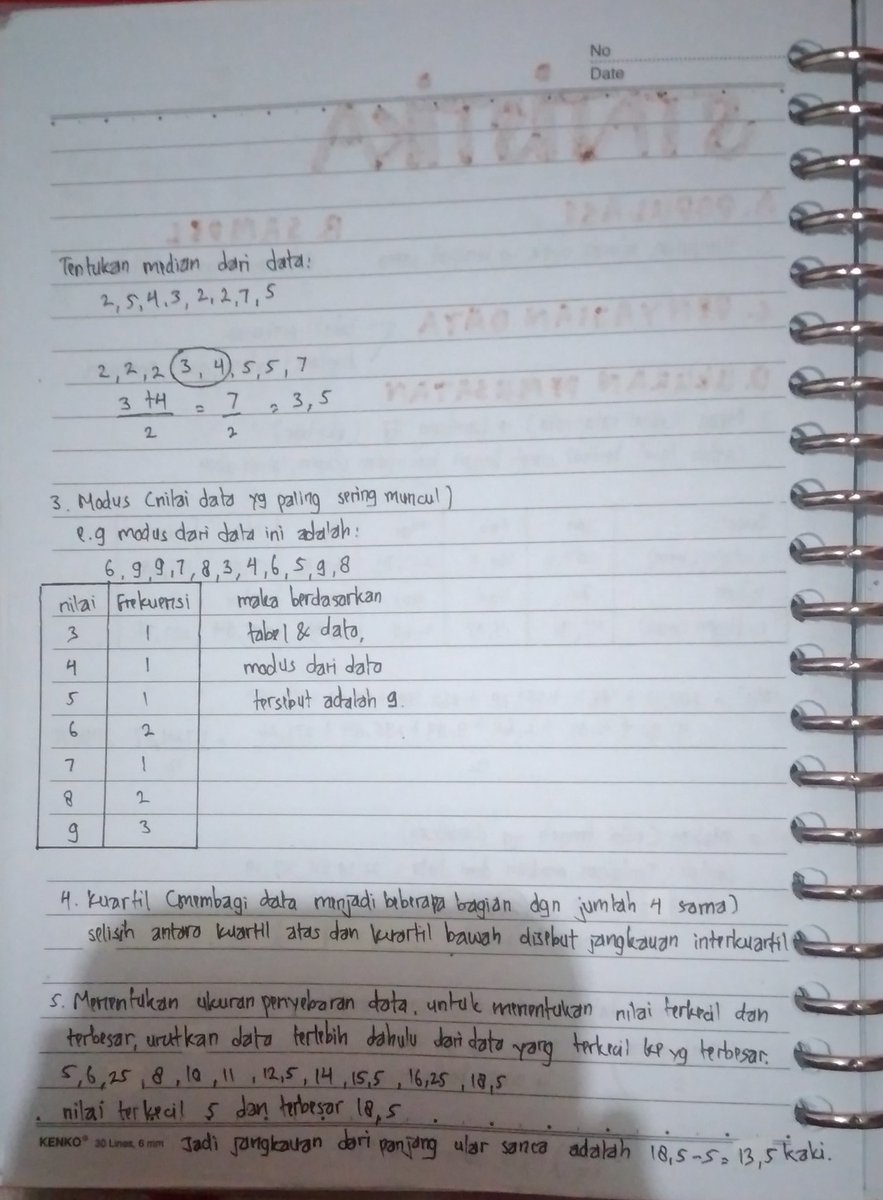 No
Date
Tentukan median dari data:
2, 5, 4, 3, 2, 2, 7, 5
2, 2, 2, 3, 4, 5, 5, 7
3 + 4 / 2 = 7 / 2 = 3,5
3. Modus (nilai data yg paling sering muncul)
e.g modus dari data ini adalah:
6, 9, 9, 7, 8, 3, 4, 6, 5, 9, 8
nilai Frekuensi
3 1
4 1
5 1
6 2
7 1
8 2
9 3
maka berdasarkan
tabel & data,
modus dari data
tersebut adalah 9.
4. Kuartil (membagi data menjadi beberapa bagian dgn jumlah 4 sama)
selisih antara kuartil atas dan kuartil bawah disebut jangkauan interkuartil
5. Menentukan ukuran penyebaran data, untuk menentukan nilai terkecil dan
terbesar, urutkan data terlebih dahulu dari data yang terkecil ke yg terbesar.
5, 6,25, 8, 10, 11, 12,5, 14, 15,5, 16,25, 18,5
nilai terkecil 5 dan terbesar 18,5
KENKO® 30 Lines, 6 mm
Jadi jangkauan dari panjang ular sanca adalah 18,5-5= 13,5 kaki.